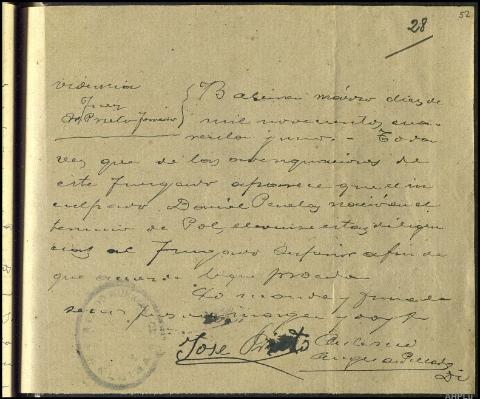 52
28
videncia
Juez
Sr Prieto Jameiro
Baleira marzo diez de
mil novecientos cua-
renta y uno.- Toda
vez que de las averiguaciones de
este Juzgado aparece que el in
culpado Daniel Penelas nació en el
termino de Pol, elevense estas diligen
cias al Juzgado Superior a fin de
que acuerde lo que proceda
Lo manda y firma
Jose Prieto
AHPLu